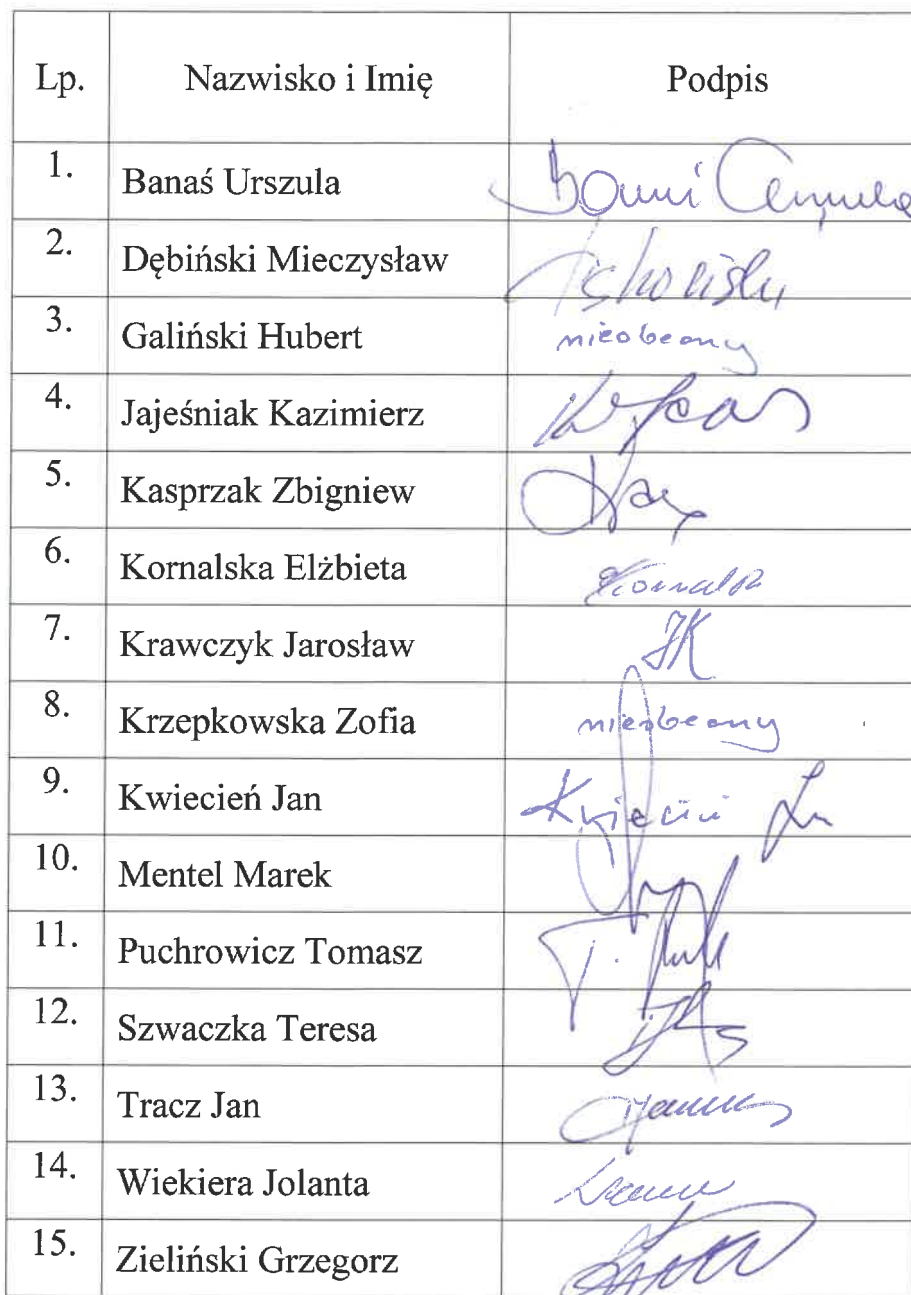 Lp. Nazwisko i Imię Podpis
1. Banaś Urszula
2. Dębiński Mieczysław
3. Galiński Hubert nieobecny
4. Jajeśniak Kazimierz
5. Kasprzak Zbigniew
6. Kornalska Elżbieta
7. Krawczyk Jarosław JK
8. Krzepkowska Zofia nieobecny
9. Kwiecień Jan
10. Mentel Marek
11. Puchrowicz Tomasz
12. Szwaczka Teresa
13. Tracz Jan
14. Wiekiera Jolanta
15. Zieliński Grzegorz